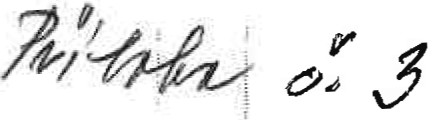 Príloha č. 3